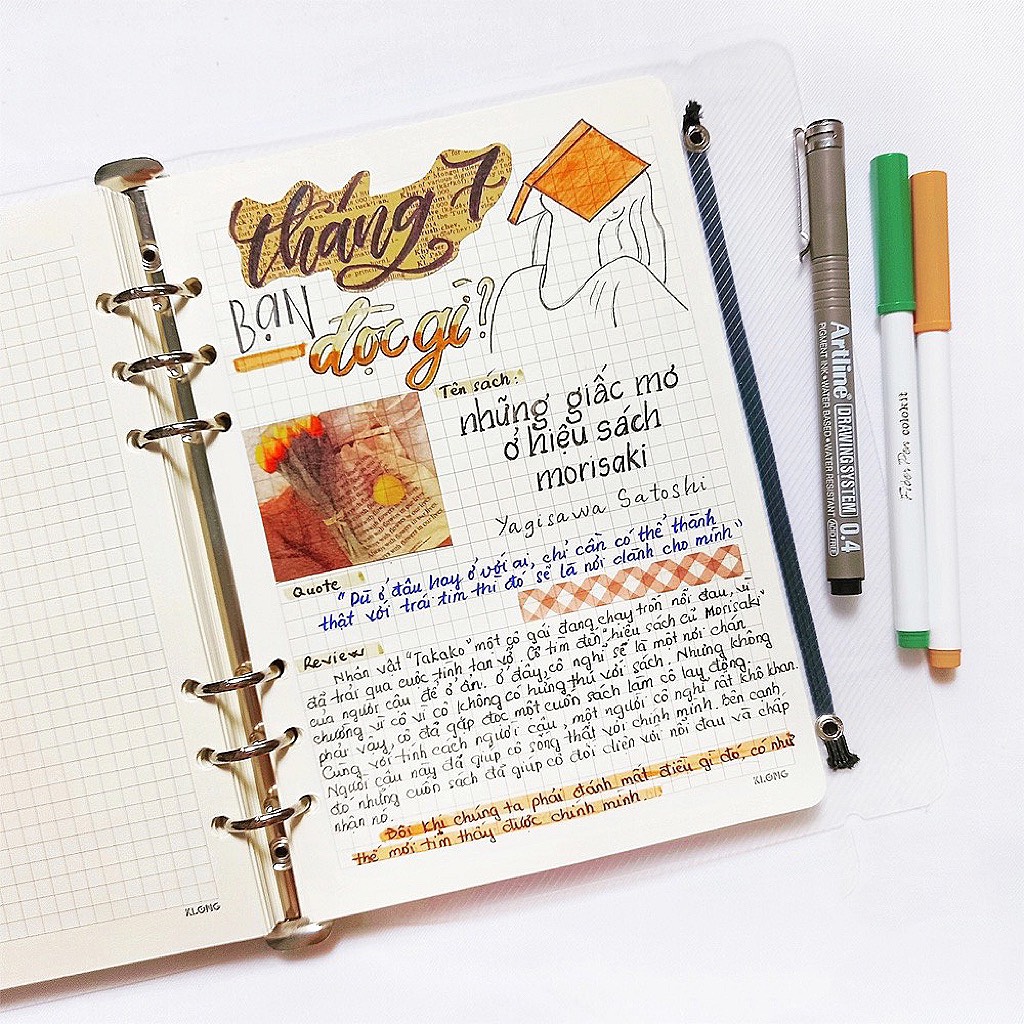 tháng 7
BẠN
đọc gì?
Tên sách:
những giấc mơ
ở hiệu sách
morisaki
Yagisawa Satoshi
Quote
"Dù ở đâu hay ở với ai, chỉ cần có thể thành
thật với trái tim thì đó sẽ là nơi dành cho mình"
Review
Nhân vật "Takako" một cô gái đang chạy trốn nỗi đau, vì
đã trải qua cuộc tình tan vỡ. Cô tìm đến "hiệu sách cũ Morisaki"
của người cậu để ở ẩn. Ở đây, cô nghĩ sẽ là một nơi chán
chường vì cô vì cô không có hứng thú với sách. Nhưng không
phải vậy, cô đã gặp đọc một cuốn sách làm cô lay động.
Cùng với tính cách người cậu, một người cô nghĩ rất khô khan.
Người cậu này đã giúp cô sống thật với chính mình. Bên cạnh
đó những cuốn sách đã giúp cô đối diện với nỗi đau và chấp
nhận nó.
Đôi khi chúng ta phải đánh mất điều gì đó, có như
thế mới tìm thấy được chính mình...
KLONG
KLONG
Artline® DRAWING SYSTEM 0.4
PIGMENT INK • WATER BASED • WATER RESISTANT
ACID FREE
Fiber Pen colokit